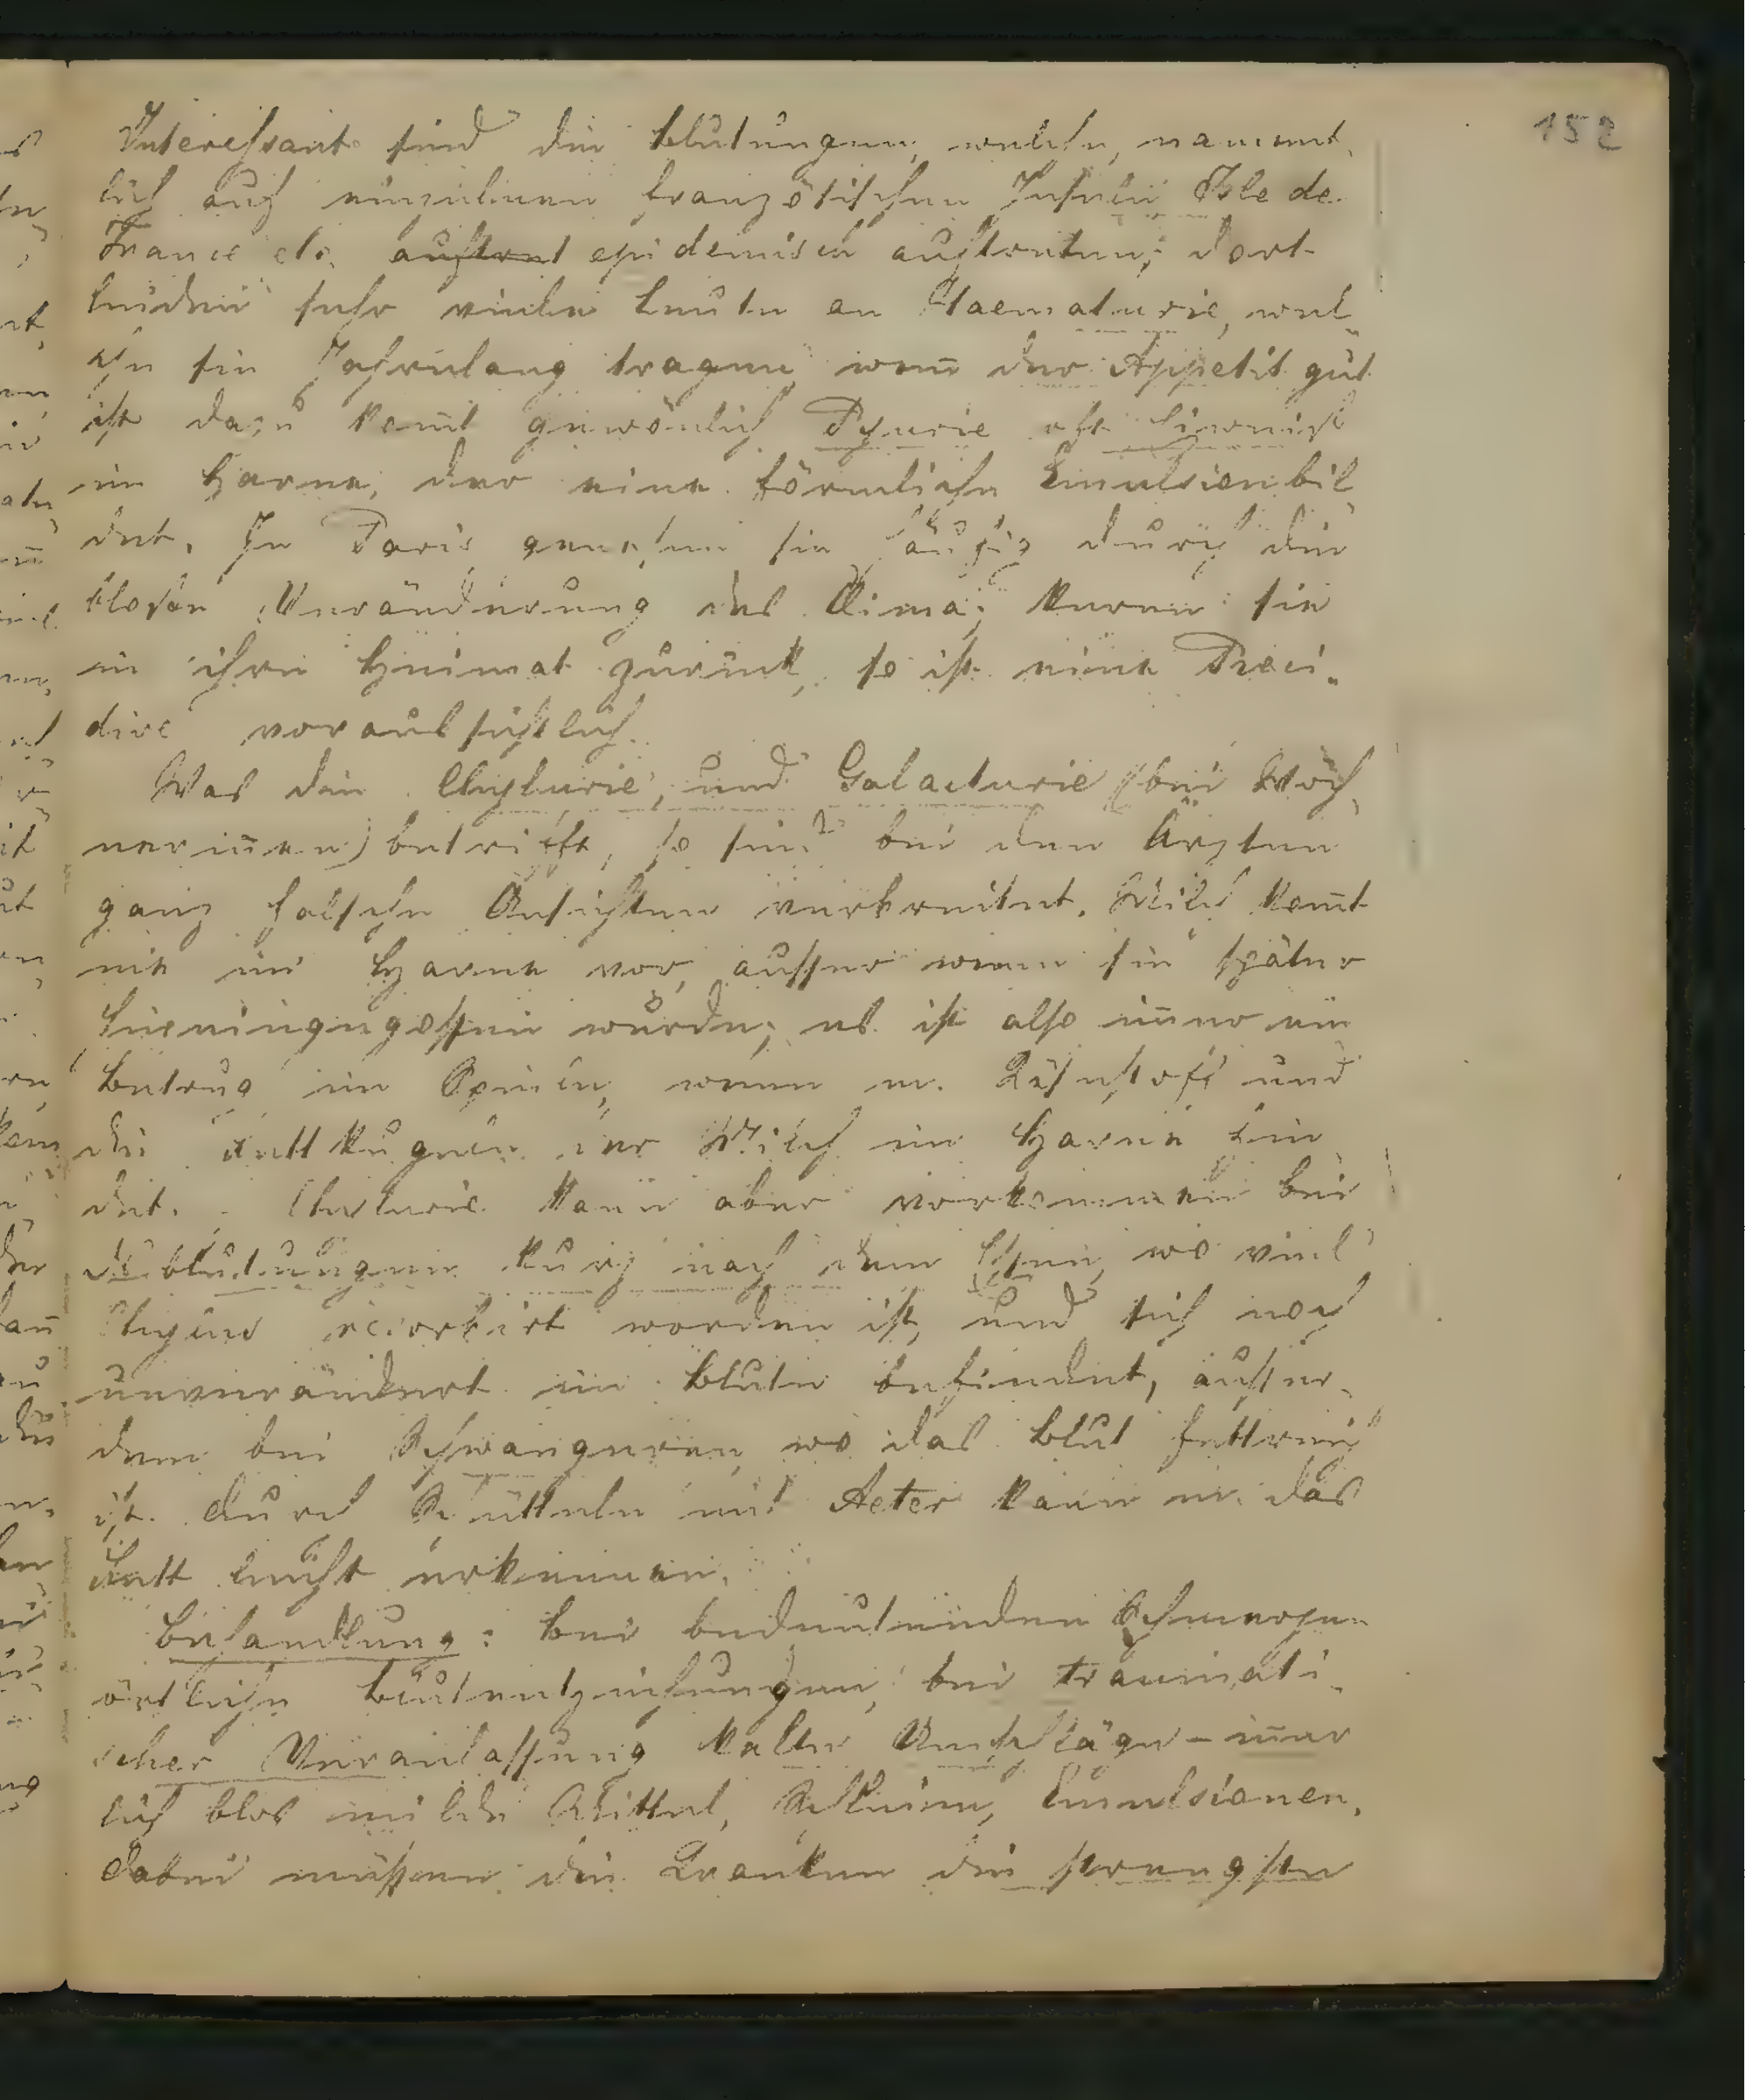 152
Interessant sind die Blutungen, welche, nament¬
lich auf einzelnen französischen Inseln Isle de
France etc. auftret epidemisch auftreten; dort
leiden sehr viele Leute an Haematurie, wel¬
che sie Jahrelang tragen wen̄ der Appetit gut
ist dazu kom̄t gewönlich Pyurie oft Eiweiß
im Harne, der eine förmliche Emulsion bil¬
det. In Paris genesen sie häufig durch die
bloße Veränderung des Clima; keren sie
in ihre Heimat zurük, so ist eine Reci¬
dive voraussichtlich.
Was die Chylurie, und Galacturie (bei Wöch¬
nerin̄en) betrifft, so sind bei den Ärzten
ganz falsche Ansichten verbreitet. Milch kom̄t
nie im Harne vor, ausser wenn sie später
hineingegossen wurde; es ist also im̄er ein
Betrug im Spiele, wenn m. Käsestoff und
die Fettkugeln der Milch im Harne fin¬
det. Chylurie kann aber vorkommen bei
Blutungen kurz nach dem Essen, wo viel
Chylus resorbirt worden ist, und sich noch
unverändert im Blute befindet, ausser¬
dem bei Schwangeren, wo das Blut fettreich
ist. Durch Schütteln mit Aeter kann m. das
Fett leicht erkennen.
Behandlung: bei bedeutenden Schmerzen
örtliche Blutentziehungen, bei traumati¬
scher Veranlassung kalte Umschläge – in̄er¬
lich blos milde Mittel, Schleime, Emulsionen.
Dabei müssen die Kranken die strengste